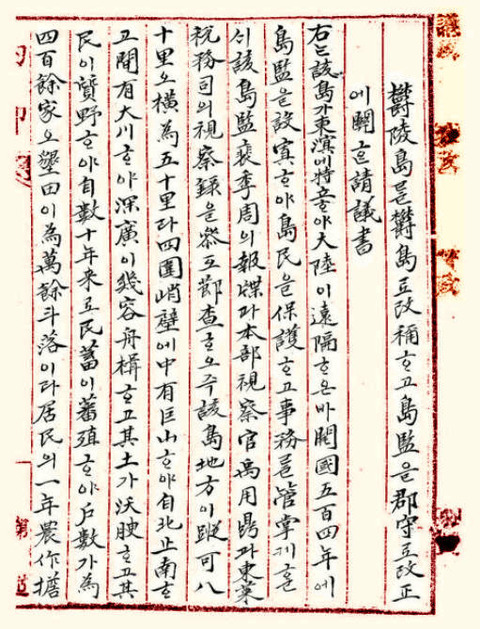 欝陵島를欝島로改稱ᄒᆞ고島監을郡守로改正
에關ᄒᆞᆫ請議書
右ᄂᆞᆫ該島가東溟에特立ᄒᆞ야大陸이遠隔ᄒᆞ온바開國五百四年에
島監을設寘ᄒᆞ야島民을保護ᄒᆞ고事務를管掌케ᄒᆞ온
바該島監裵季周의報牒과本部視察官禹用鼎과東萊
稅務司의視察錄을叅互調查ᄒᆞ온즉該島地方이縱可八
十里오橫為五十里라四圍峭壁에中有巨山ᄒᆞ야自北止南ᄒᆞ
고間有大川ᄒᆞ야深廣이幾容舟楫ᄒᆞ고其土가沃腴ᄒᆞ고其
民이質野ᄒᆞ야自數十年来로民蓄이蕃殖ᄒᆞ야戶数가為
四百餘家오墾田이為萬餘斗落이라居民의一年農作摠